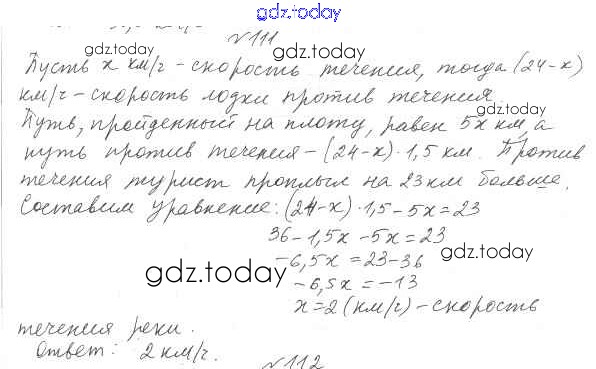 gdz.today
№111
gdz.today gdz.today
Пусть x км/г - скорость течения, тогда (24-x)
км/г - скорость лодки против течения
gdz.today
Путь, пройденный на плоту, равен 5x км, а
путь против течения - (24-x)·1,5 км. Против
течения турист проплыл на 23 км больше.
Составим уравнение: (24-x)·1,5-5x=23
36-1,5x-5x=23
gdz.today
-6,5x=23-36
gdz.today
-6,5x=-13
x=2 (км/г) - скорость
течения реки.
Ответ: 2 км/г.
№112